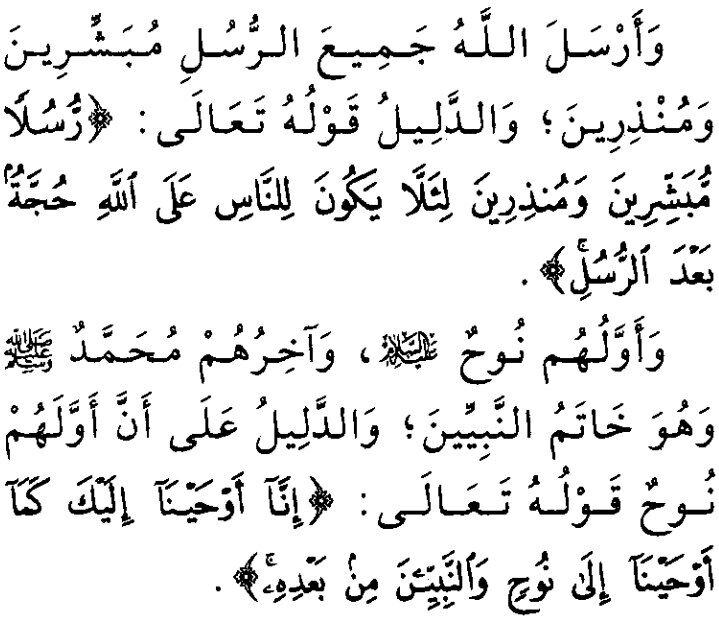 وَأَرْسَلَ اللَّهُ جَمِيعَ الرُّسُلِ مُبَشِّرِينَ
وَمُنْذِرِينَ؛ وَالدَّلِيلُ قَوْلُهُ تَعَالَى: ﴿رُّسُلًا
مُّبَشِّرِينَ وَمُنذِرِينَ لِئَلَّا يَكُونَ لِلنَّاسِ عَلَى ٱللَّهِ حُجَّةُۢ
بَعْدَ ٱلرُّسُلِۚ﴾.
وَأَوَّلُهُم نُوحٌ عَلَيْهِ السَّلَامُ، وَآخِرُهُمْ مُحَمَّدٌ ﷺ
وَهُوَ خَاتَمُ النَّبِيِّينَ؛ وَالدَّلِيلُ عَلَى أَنَّ أَوَّلَهُمْ
نُوحٌ قَوْلُهُ تَعَالَى: ﴿إِنَّآ أَوْحَيْنَآ إِلَيْكَ كَمَآ
أَوْحَيْنَآ إِلَىٰ نُوحٍ وَٱلنَّبِيِّـۧنَ مِنۢ بَعْدِهِۦۚ﴾.